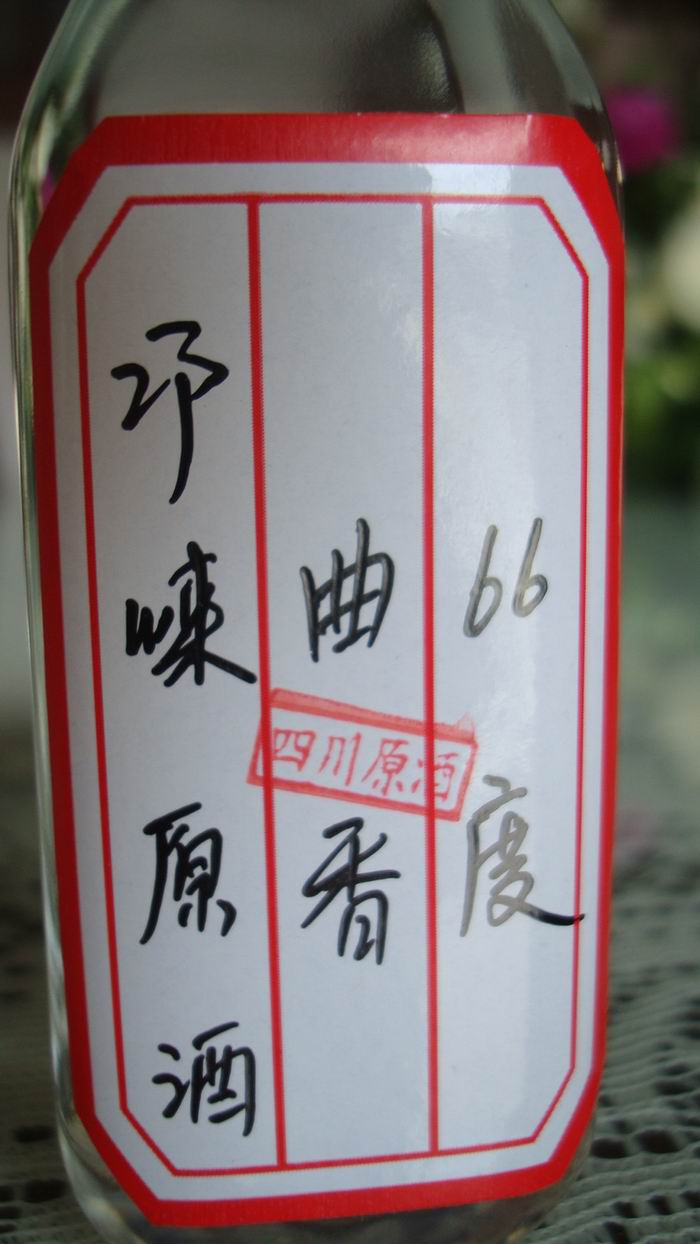 邛崃原酒
曲香
66度
四川原酒